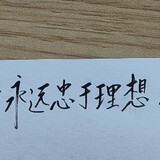 永远忠于理想